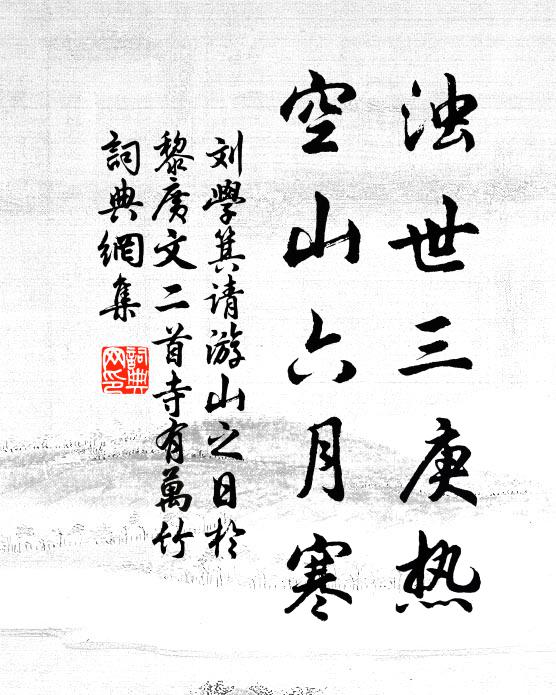 浊世三庚热
空山六月寒
刘學箕请游山之日於
黎廣文二首寺有萬竹
詞典網集
詞典网印